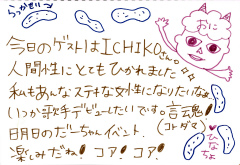 らっかせい→
おに
今日のゲストはICHIKOさん。
人間性にとてもひかれました
私もあんなステキな女性になりたいなぁ
いつか歌手デビューしたいです。言魂!
(コトダマ)
明日のだーちゃんイベント、
楽しみだね! コア! コア!
ひなちょ